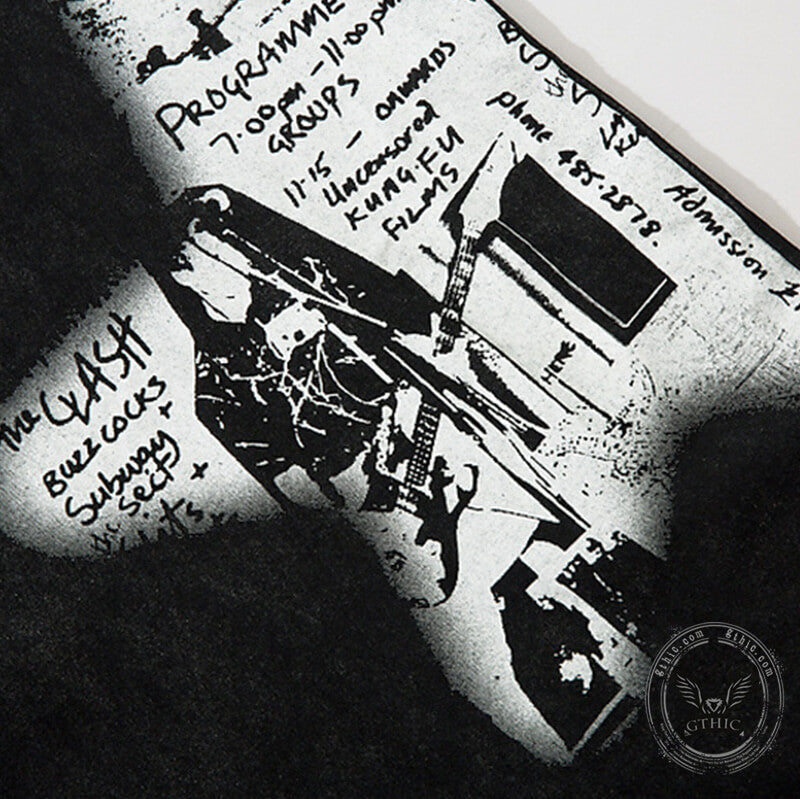 PROGRAMME
7.00pm - 11.00pm
GROUPS
11.15 - ONWARDS
Uncensored
KUNG-FU
FILMS
phone 485.2878.
Admission £1
the CLASH
BUZZCOCKS
+
Subway
Sect +
the
gthic.com
gthic.com
GTHIC